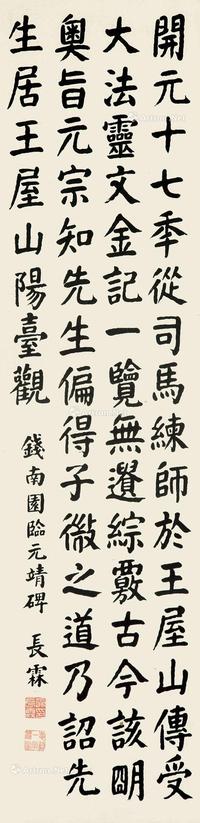 開元十七秊從司馬練師於王屋山傳受
大法靈文金記一覽無遺綜覈古今該明
奧旨元宗知先生偏得子微之道乃詔先
生居王屋山陽臺觀
錢南園臨元靖碑 長霖